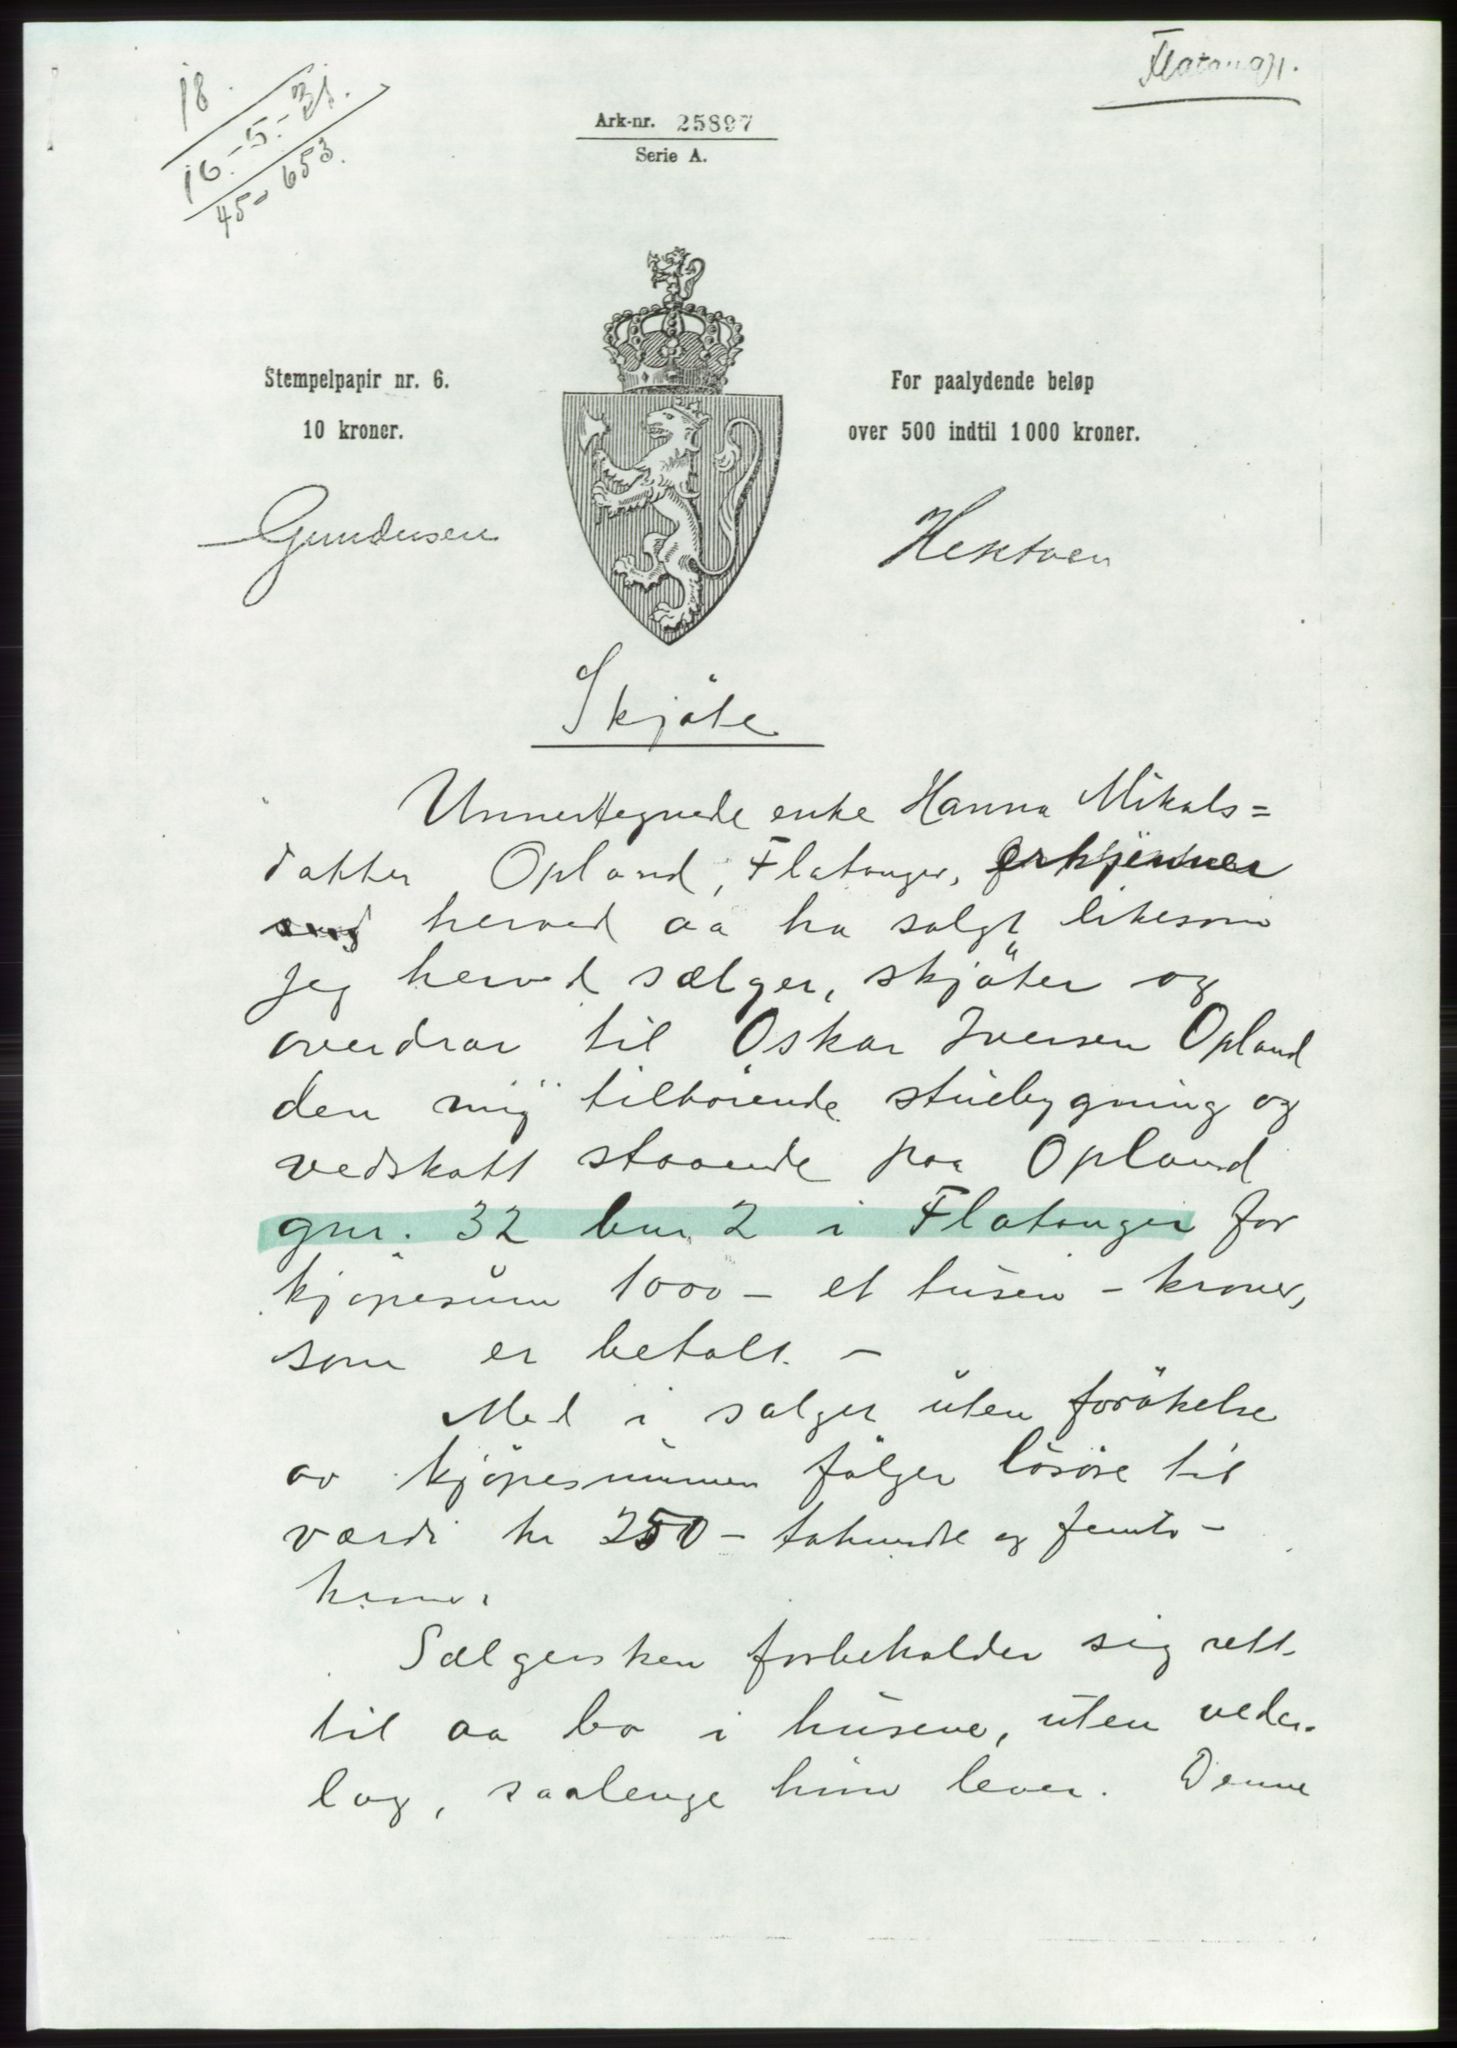 18.
16.-5.-31.
45-653.
Flatangr.
Ark-nr. 25897
Serie A.
Stempelpapir nr. 6.
10 kroner.
For paalydende beløp
over 500 indtil 1000 kroner.
Gundersen
Hektoen
Skjöte
Unnertegnede enke Hanna Mikals=
datter Opland, Flatanger, erkjenner
herved aa ha solgt likesom
jeg herved sælger, skjöter og
overdrar til Oskar Iversen Opland
den mig tilhörende stuebygning og
vedskott staaende paa Opland
gnr. 32 bnr. 2 i Flatanger for
kjöpesum 1000 – et tusen – kroner,
som er betalt. –
Med i salget uten forökelse
av kjöpesummen fölger lösöre til
værdi kr 250 – tohundre og femti –
kroner.
Sælgersken forbeholder sig rett
til aa bo i husene, uten veder-
lag, saalenge hun lever. Denne